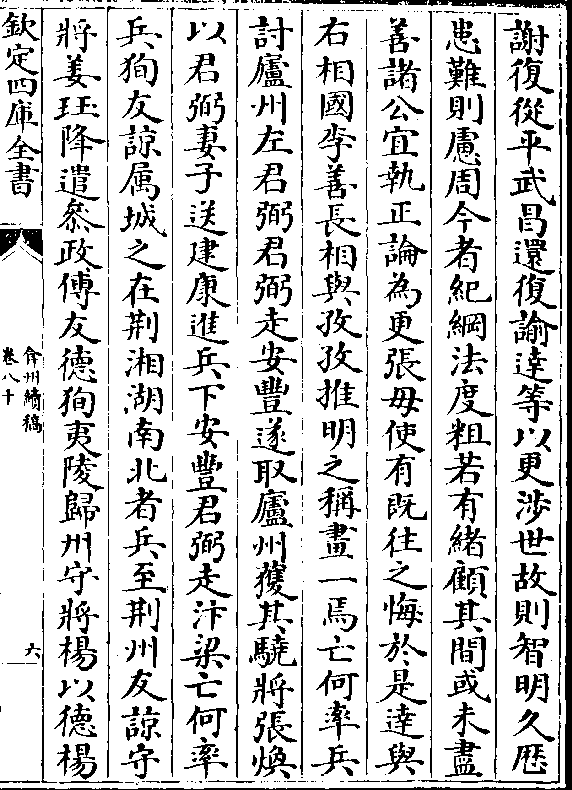 謝復從平武昌還復諭達等以更涉世故則智明久歴
患難則慮周今者紀綱法度粗若有緒顧其間或未盡
善諸公宜執正論為更張毋使有既往之悔於是達與
右相國李善長相與孜孜推明之稱畫一焉亡何率兵
討廬州左君弼君弼走安豐遂取廬州獲其驍將張煥
以君弼妻子送建康進兵下安豐君弼走汴梁亡何率
兵狥友諒属城之在荆湘湖南北者兵至荆州友諒守
將姜珏降遣叅政傅友德狥夷陵歸州守將楊以德楊
欽定四庫全書
弇州續稿
卷八十
六